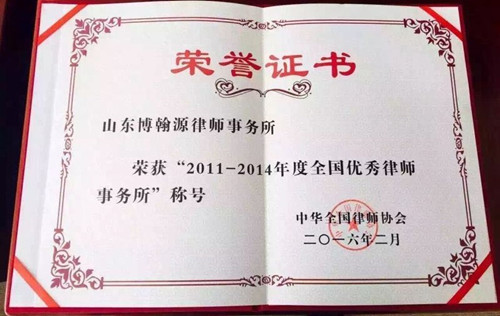 荣誉证书
山东博翰源律师事务所
荣获“2011-2014年度全国优秀律师
事务所”称号
中华全国律师协会
二〇一六年二月